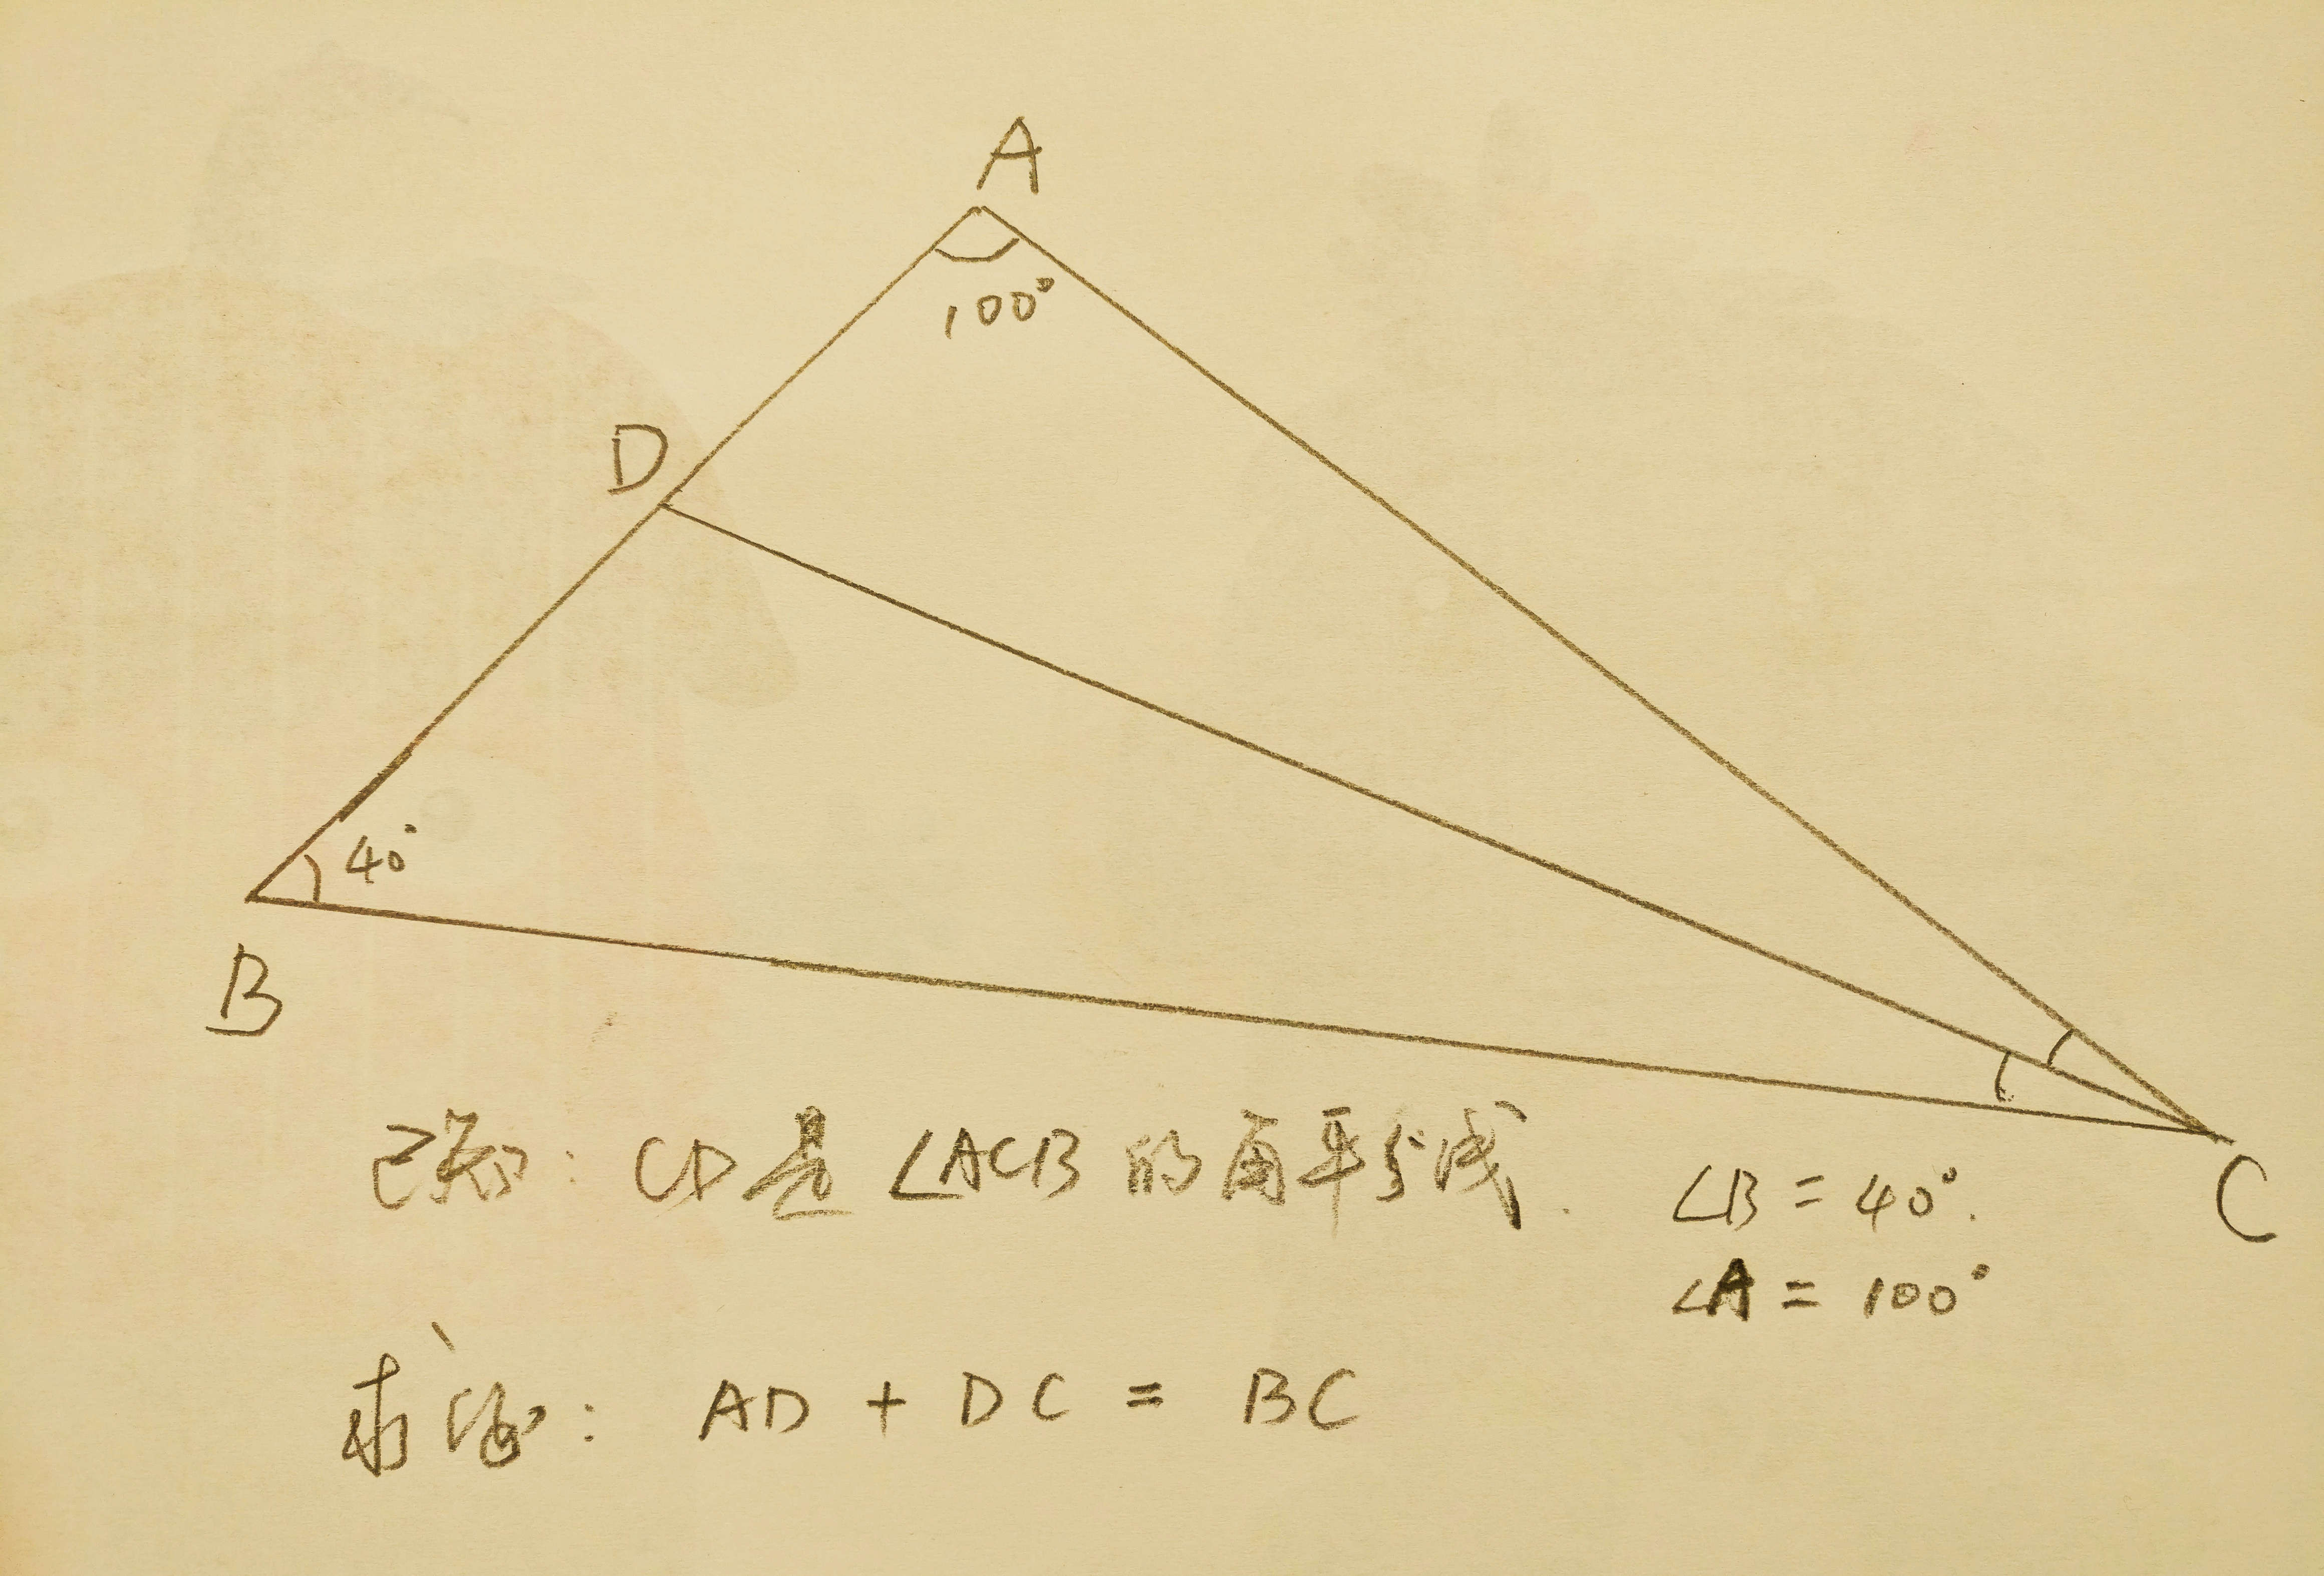 A
100°
D
40°
B
C
已知: CD是∠ACB的角平分线. ∠B = 40°.
∠A = 100°
求证: AD + DC = BC